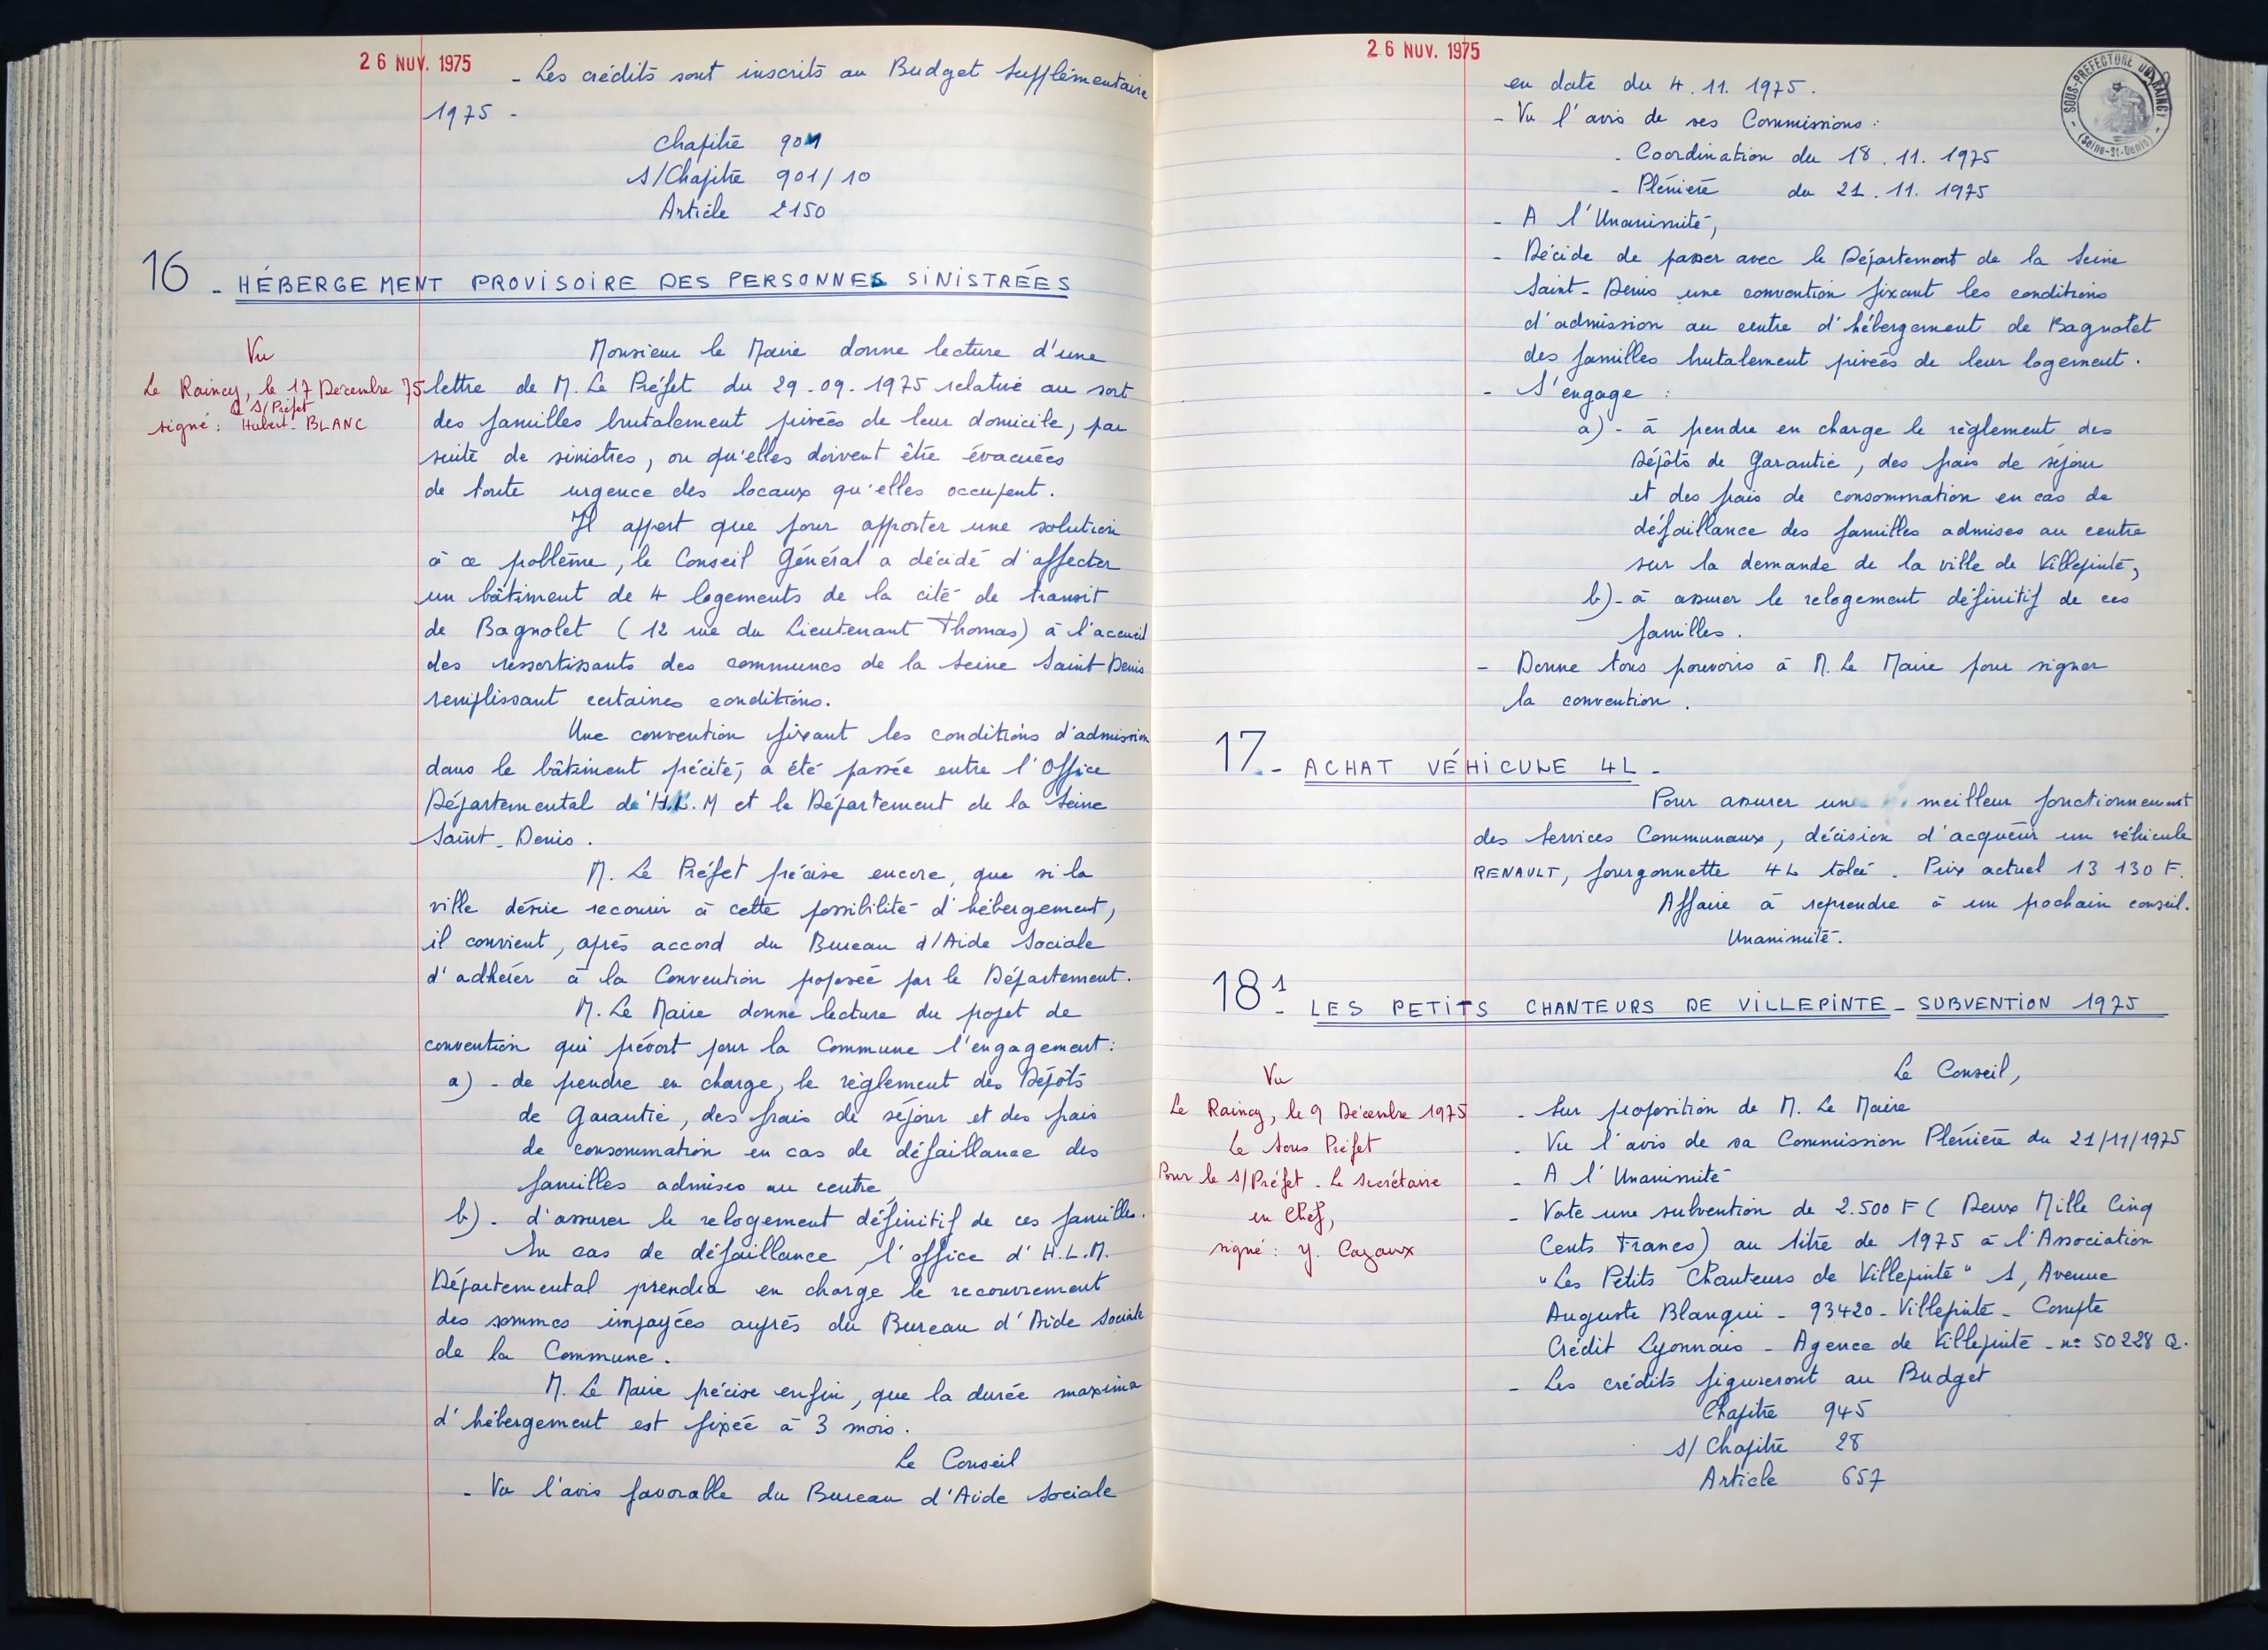 26 NOV. 1975
- Les crédits sont inscrits au Budget Supplémentaire
1975 -
Chapitre 901
S/Chapitre 901/10
Article 2150
16 - HÉBERGEMENT PROVISOIRE DES PERSONNES SINISTRÉES
Vu
Le Raincy, le 17 Décembre 75
Le S/Préfet
signé : Hubert BLANC
Monsieur le Maire donne lecture d'une
lettre de M. Le Préfet du 29.09.1975 relative au sort
des familles brutalement privées de leur domicile, par
suite de sinistres, ou qu'elles doivent être évacuées
de toute urgence des locaux qu'elles occupent.
Il appert que pour apporter une solution
à ce problème, le Conseil Général a décidé d'affecter
un bâtiment de 4 logements de la cité de transit
de Bagnolet (12 rue du Lieutenant Thomas) à l'accueil
des ressortissants des communes de la Seine Saint-Denis
remplissant certaines conditions.
Une convention fixant les conditions d'admission
dans le bâtiment précité, a été passée entre l'Office
Départemental d'H.L.M et le Département de la Seine
Saint-Denis.
M. Le Préfet précise encore, que si la
ville désire recourir à cette possibilité d'hébergement,
il convient, après accord du Bureau d'Aide Sociale
d'adhérer à la Convention proposée par le Département.
M. Le Maire donne lecture du projet de
convention qui prévoit pour la Commune l'engagement :
a) - de prendre en charge, le règlement des Dépôts
de Garantie, des frais de séjour et des frais
de consommation en cas de défaillance des
familles admises au centre
b) - d'assurer le relogement définitif de ces familles.
En cas de défaillance, l'office d'H.L.M.
Départemental prendra en charge le recouvrement
des sommes impayées auprès du Bureau d'Aide Sociale
de la Commune.
M. Le Maire précise enfin, que la durée maxima
d'hébergement est fixée à 3 mois.
Le Conseil
- Vu l'avis favorable du Bureau d'Aide Sociale
26 NOV. 1975
SOUS-PREFECTURE DU RAINCY
(Seine-St-Denis)
en date du 4.11.1975.
- Vu l'avis de ses Commissions :
- Coordination du 18.11.1975
- Plénière du 21.11.1975
- A l'Unanimité,
- Décide de passer avec le Département de la Seine
Saint-Denis une convention fixant les conditions
d'admission au centre d'hébergement de Bagnolet
des familles brutalement privées de leur logement.
- S'engage :
a) - à prendre en charge le règlement des
Dépôts de Garantie, des frais de séjour
et des frais de consommation en cas de
défaillance des familles admises au centre
sur la demande de la ville de Villepinte,
b) - à assurer le relogement définitif de ces
familles.
- Donne tous pouvoirs à M. Le Maire pour signer
la convention.
17 - ACHAT VÉHICULE 4L -
Pour assurer un meilleur fonctionnement
des Services Communaux, décision d'acquérir un véhicule
RENAULT, fourgonnette 4L tolée. Prix actuel 13 130 F.
Affaire à reprendre à un prochain conseil.
Unanimité.
18 1 - LES PETITS CHANTEURS DE VILLEPINTE - SUBVENTION 1975
Vu
Le Raincy, le 9 Décembre 1975
Le Sous Préfet
Pour le S/Préfet - Le Secrétaire
en Chef,
signé : Y. Cazaux
Le Conseil,
- Sur proposition de M. Le Maire
- Vu l'avis de sa Commission Plénière du 21/11/1975
- A l'Unanimité
- Vote une subvention de 2.500 F (Deux Mille Cinq
Cents Francs) au titre de 1975 à l'Association
"Les Petits Chanteurs de Villepinte" 1, Avenue
Auguste Blanqui - 93420 - Villepinte - Compte
Crédit Lyonnais - Agence de Villepinte - n° 50228 Q.
- Les crédits figureront au Budget
Chapitre 945
S/Chapitre 28
Article 657